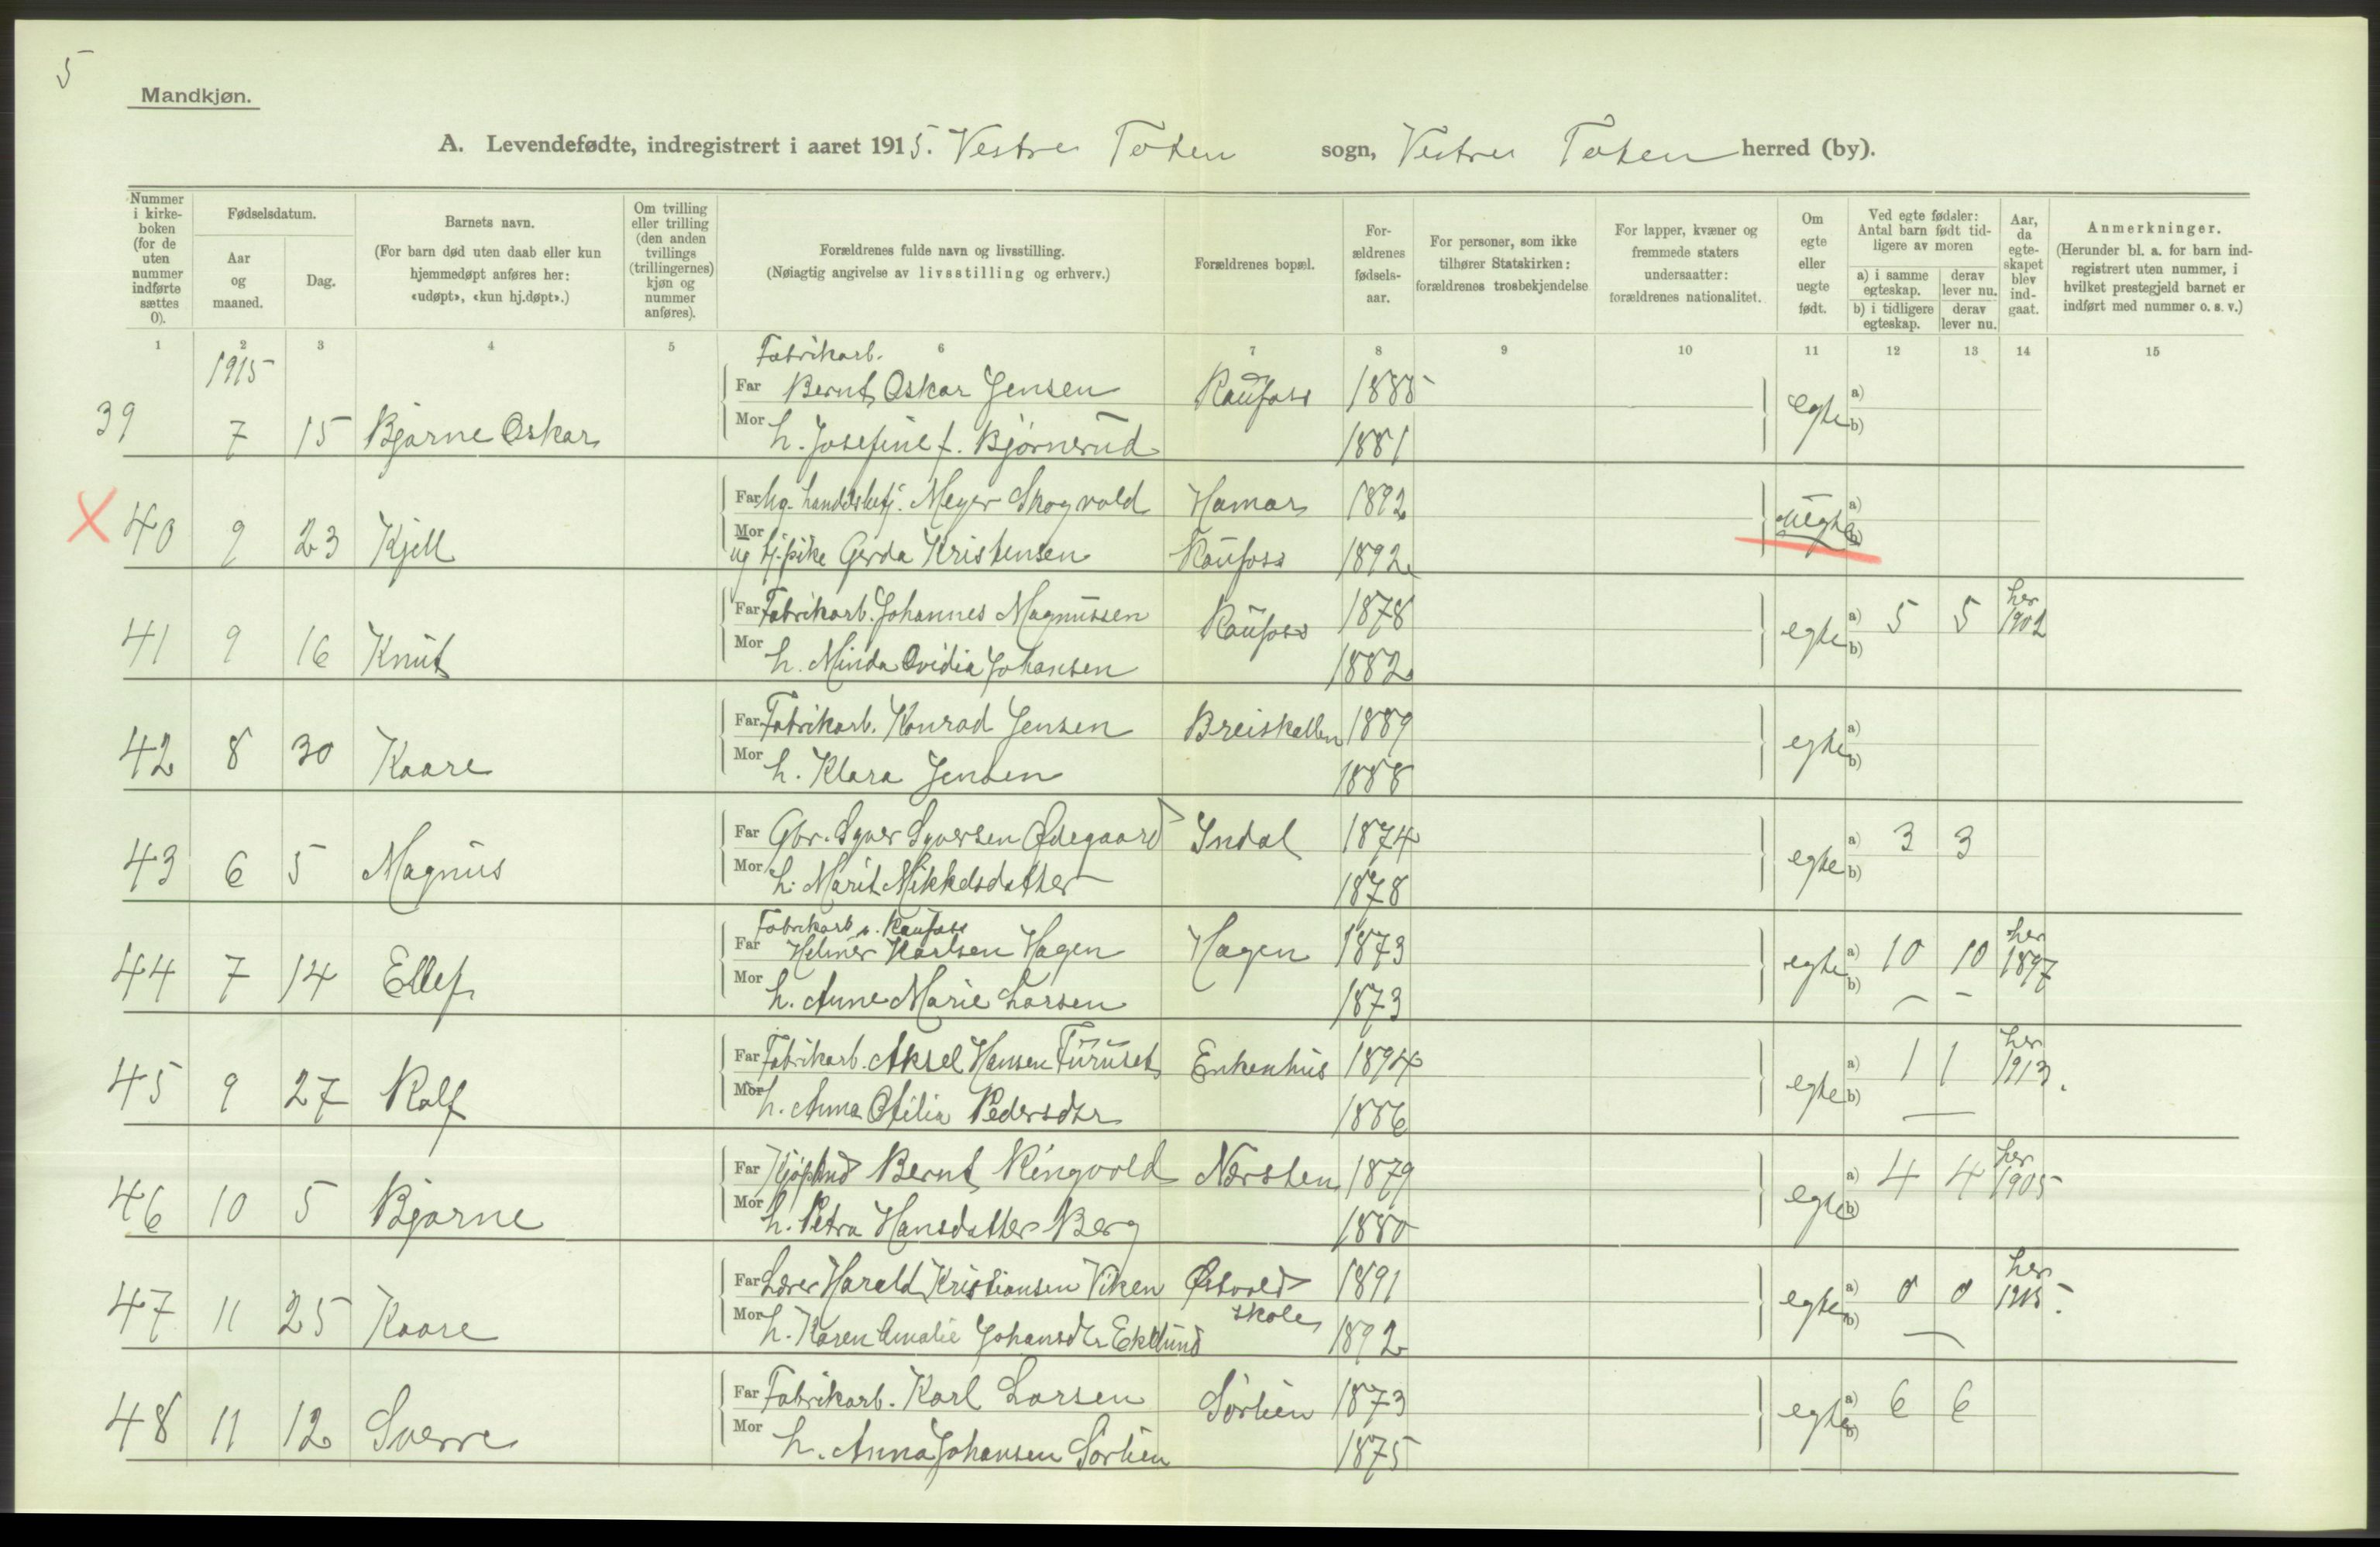 5
Mandkjøn.
A. Levendefødte, indregistrert i aaret 1915. Vestre Toten sogn, Vestre Toten herred (by).
Nummer i kirkeboken (for de uten nummer indførte sættes 0).
Fødselsdatum.
Aar og maaned.
Dag.
Barnets navn.
(For barn død uten daab eller kun hjemmedøpt anføres her: «udøpt», «kun hj.døpt».)
Om tvilling eller trilling (den anden tvillings (trillingernes) kjøn og nummer anføres).
Forældrenes fulde navn og livsstilling.
(Nøiagtig angivelse av livsstilling og erhverv.)
Forældrenes bopæl.
Forældrenes fødselsaar.
For personer, som ikke tilhører Statskirken: forældrenes trosbekjendelse
For lapper, kvæner og fremmede staters undersaatter: forældrenes nationalitet.
Om egte eller uegte født.
Ved egte fødsler: Antal barn født tidligere av moren
a) i samme egteskap. derav lever nu.
b) i tidligere egteskap. derav lever nu.
Aar, da egteskapet blev indgaat.
Anmerkninger.
(Herunder bl. a. for barn indregistrert uten nummer, i hvilket prestegjeld barnet er indført med nummer o. s. v.)
1 2 3 4 5 6 7 8 9 10 11 12 13 14 15
1915
Fabrikarb.
Far Bernt Oskar Jensen Raufoss 1885
39 7 15 Bjarne Oskar egte a) b)
Mor h. Josefine f. Bjørnerud 1881
Far Ug. handelsbetj. Meyer Skogvold Hamar 1892
X 40 9 23 Kjell uegte a) b)
Mor ug tj.pike Gerda Kristensen Raufoss 1892
Far Fabrikarb. Johannes Magnussen Raufoss 1878
41 9 16 Knut egte a) 5 5 her 1902 b)
Mor h. Minda Ovidia Johansen 1882
Far Fabrikarb. Konrad Jensen Breiskallen 1889
42 8 30 Kaare egte a) b)
Mor h. Klara Jensen 1888
Far Gbr. Syver Syversen Ødegaard Indal 1874
43 6 5 Magnus egte a) 3 3 b)
Mor h. Marit Mikkelsdatter 1878
Fabrikarb v. Raufoss
Far Helmer Karlsen Hagen Hagen 1873
44 7 14 Ellef egte a) 10 10 her 1897 b) – –
Mor h. Anne Marie Larsen 1873
Far Fabrikarb. Aksel Hansen Furuset Enkenhus 1894
45 9 27 Ralf egte a) 1 1 her 1913. b) —
Mor h. Anna Otilia Pedersdtr 1886
Far Kjøpmd Bernt Ringvold Nørsten 1879
46 10 5 Bjarne egte a) 4 4 her 1905 b)
Mor h. Petra Hansdatter Berg 1880
Far Lærer Harald Kristiansen Viken Østvold skole 1891
47 11 25 Kaare egte a) 0 0 her 1915. b) —
Mor h. Karen Amalie Johansdtr Eklund 1892
Far Fabrikarb. Karl Larsen Sørlien 1873
48 11 12 Sverre egte a) 6 6 b)
Mor h. Anna Johansen Sørlien 1875